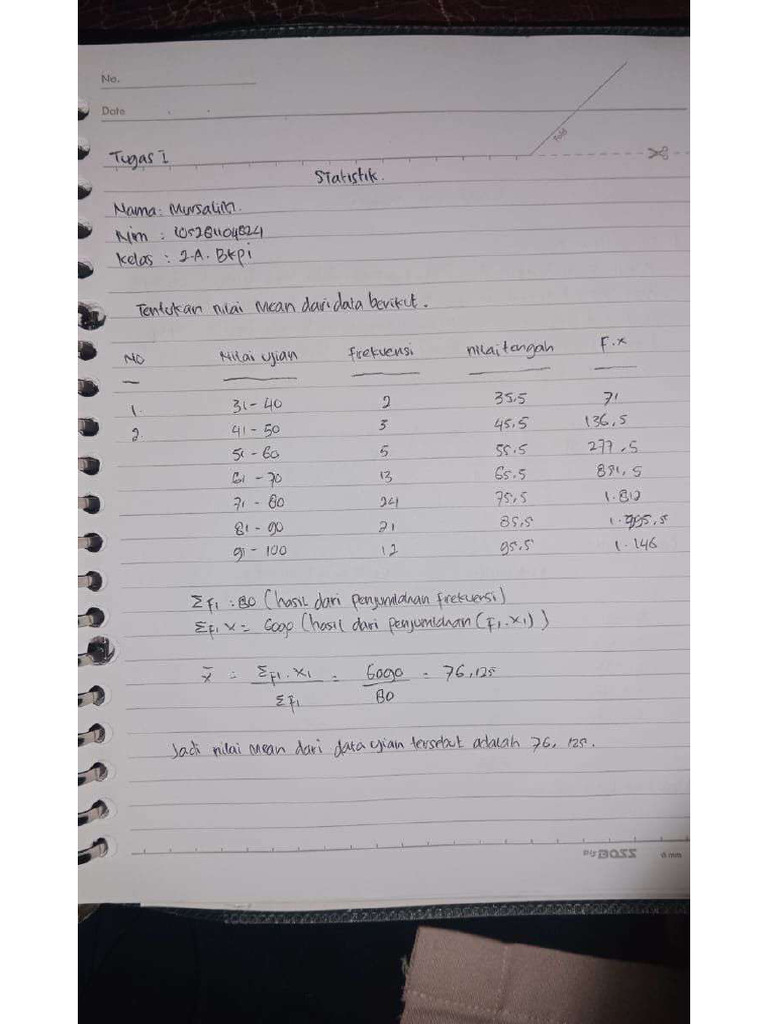 No.
Date
Fold
Tugas I
Statistik.
Nama: Mursalim.
Nim : 105281104824
Kelas : 2.A. BKPI
Tentukan nilai mean dari data berikut.
No Nilai ujian frekuensi nilai tengah F.x
1. 31-40 2 35.5 71
2. 41-50 3 45.5 136,5
51-60 5 55.5 277,5
61-70 13 65.5 851,5
71-80 24 75,5 1.812
81-90 21 85,5
91-100 12 95.5 1.146
Σf1 : 80 (hasil dari penjumlahan frekuensi)
Σf1 x = 6090 (hasil dari penjumlahan (f1.x1))
x̄ = Σf1.x1 / Σf1 = 6090 / 80 = 76,125
Jadi nilai mean dari data ujian tersebut adalah 76,125.
BOSS 8 mm